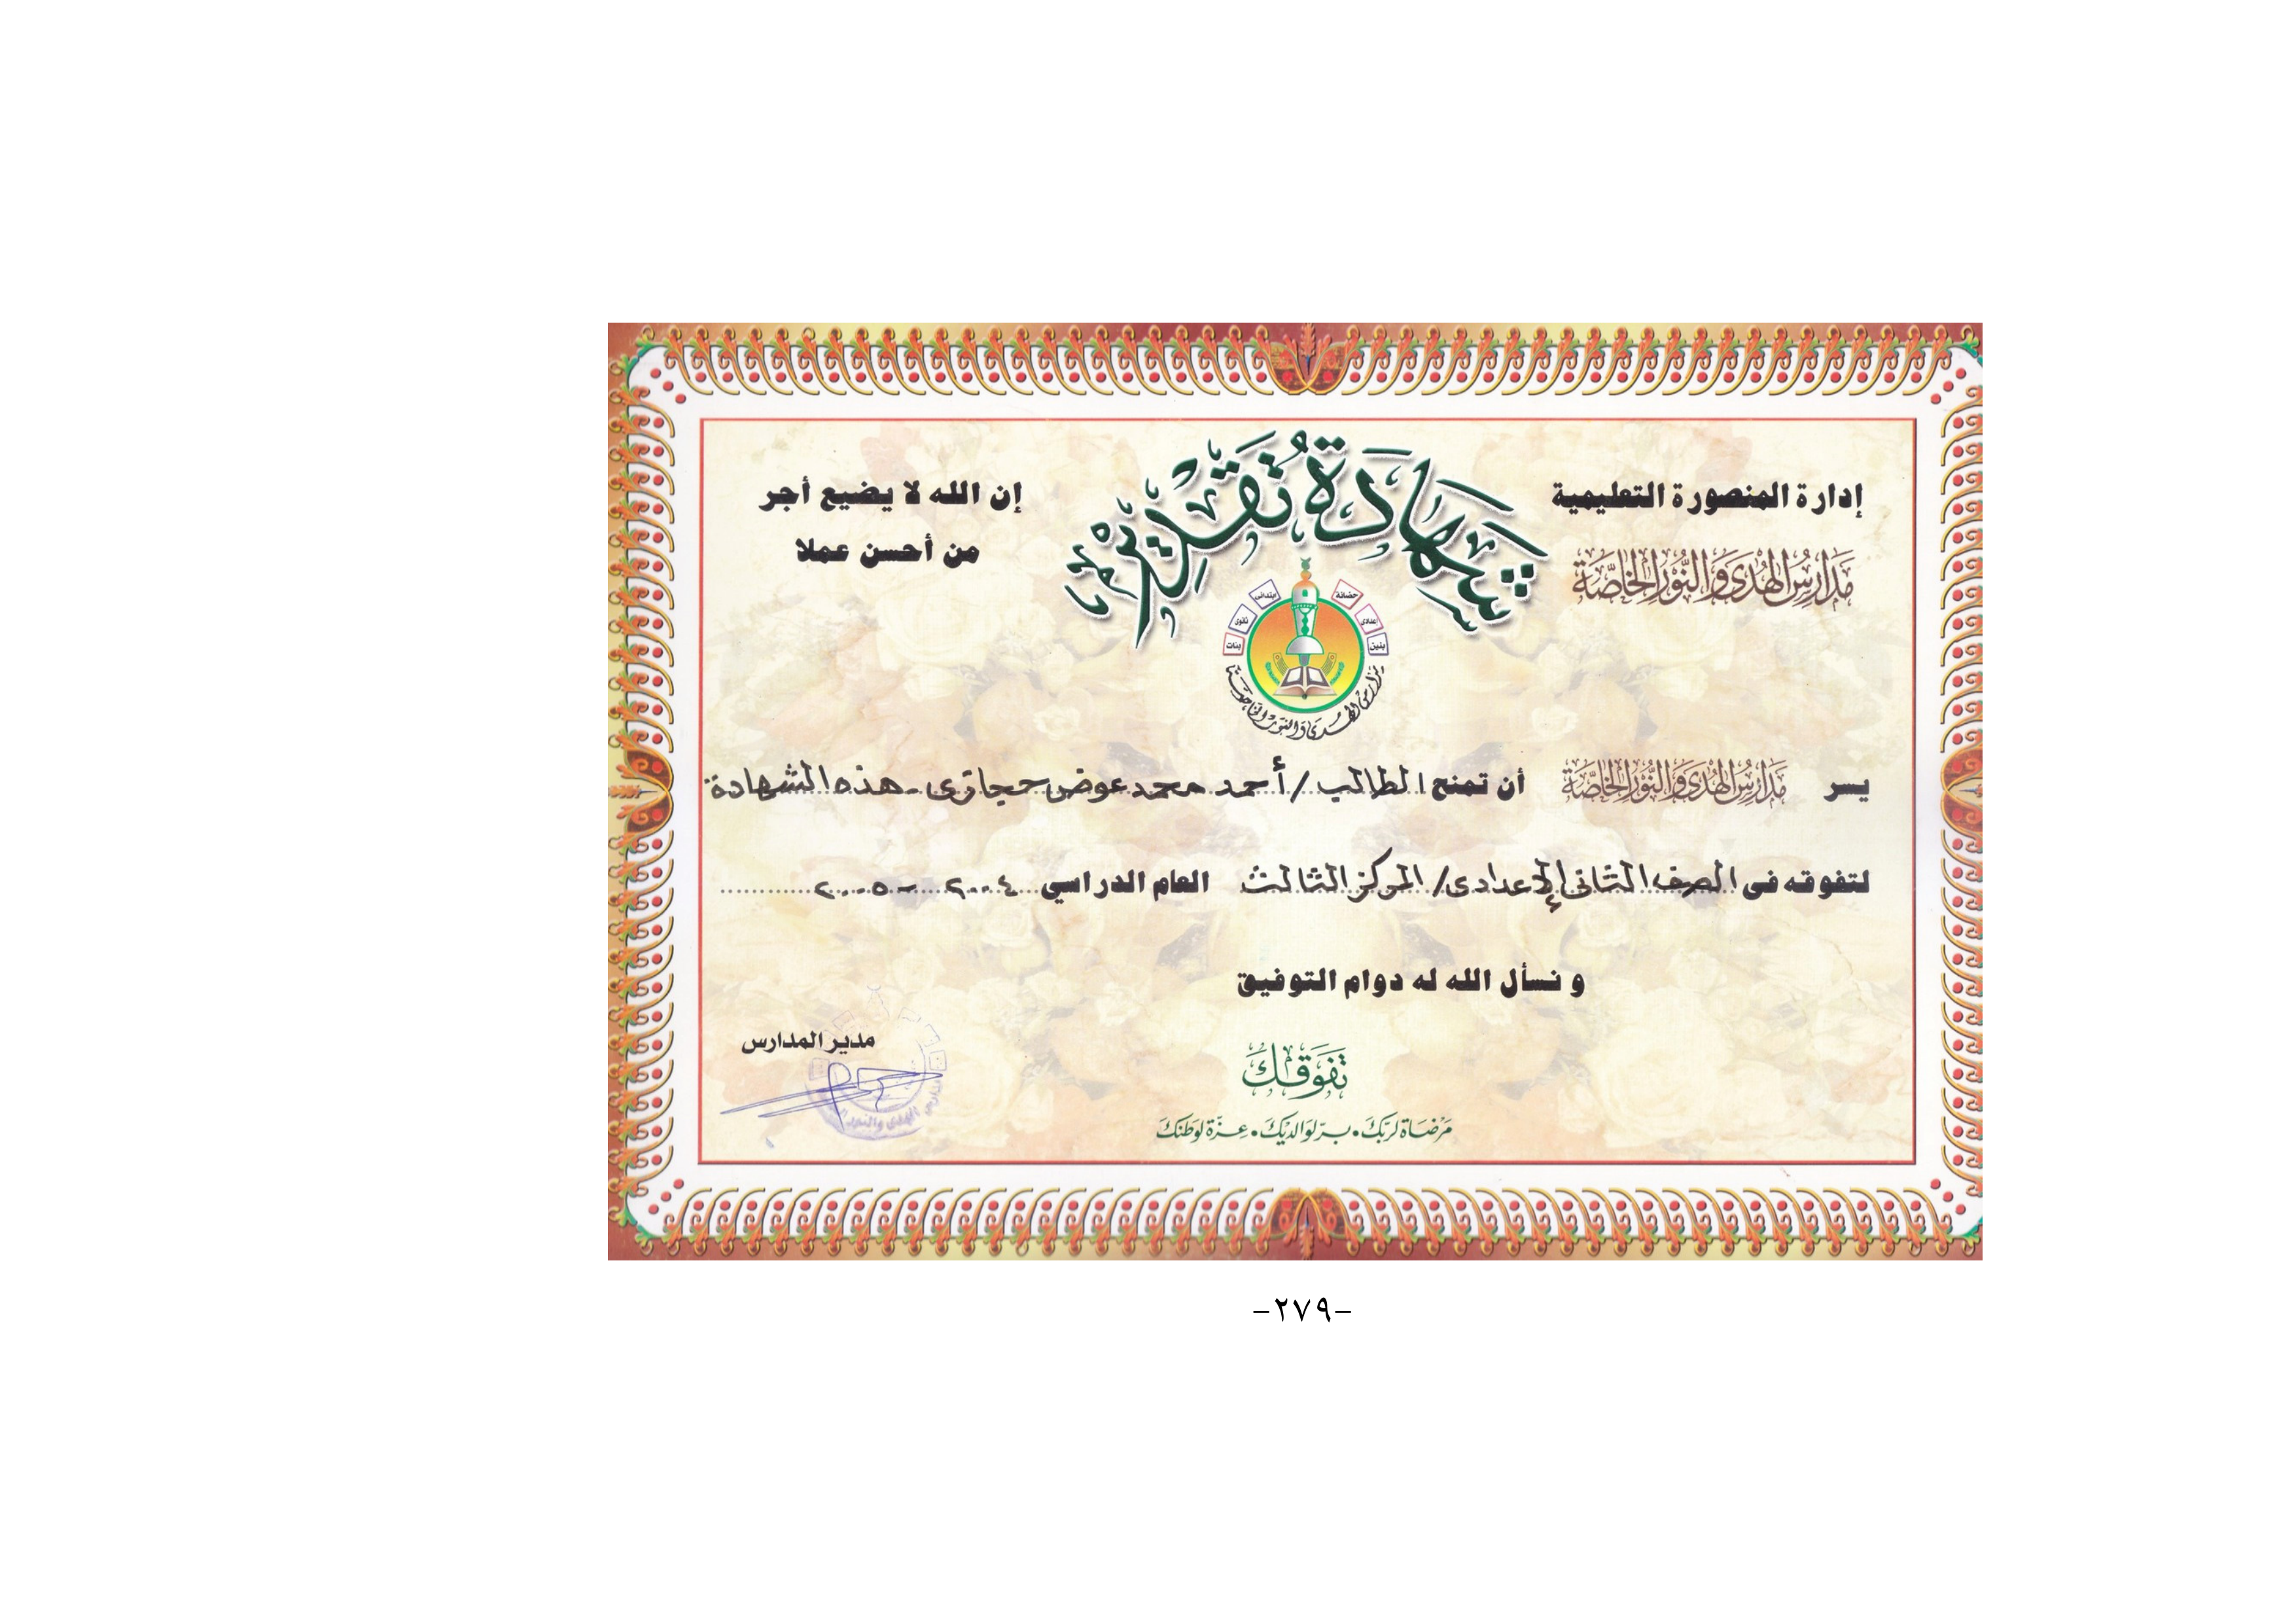 إدارة المنصورة التعليمية
مدارس الهدى والنور الخاصة
شهادة تقدير
إن الله لا يضيع أجر
من أحسن عملا
حضانة
ابتدائى
إعدادى
ثانوى
بنين
بنات
مدارس الهدى والنور الخاصة
يسر مدارس الهدى والنور الخاصة أن تمنح الطالب / أحمد محمد عوض حجازى - هذه الشهادة
لتفوقه فى الصف الثانى الإعدادى / المركز الثالث العام الدراسي ٢٠٠٤ - ٢٠٠٥
و نسأل الله له دوام التوفيق
مدير المدارس
تفوقك
مرضاة لربك • بر لوالديك • عزة لوطنك
-٢٧٩-